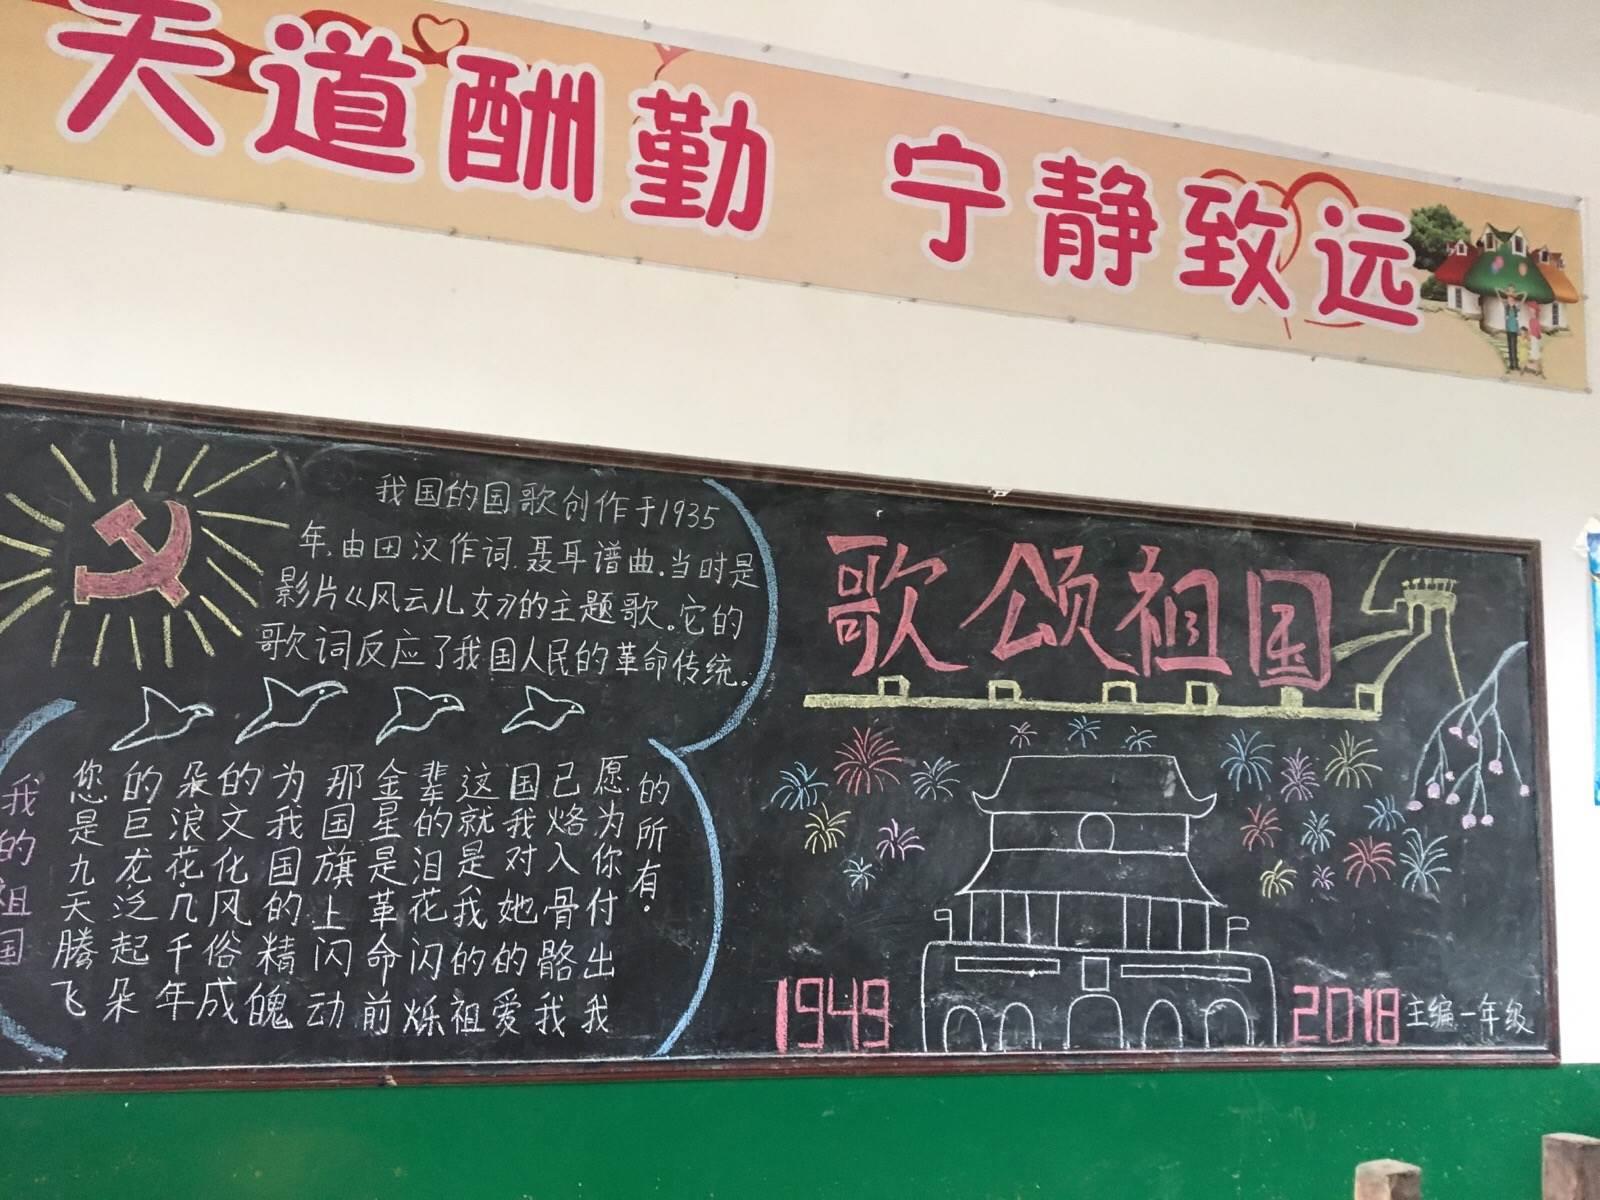 天道酬勤 宁静致远
我国的国歌创作于1935
年,由田汉作词.聂耳谱曲.当时是
影片《风云儿女》的主题歌。它的
歌词反应了我国人民的革命传统。
我的祖国
您是九天腾飞
的巨龙泛起朵
朵浪花,几千年
的文化风俗成
为我国的精魄
那国旗上闪动
金星是革命前
辈的泪花闪烁
这就是我的祖
国我对她的爱
已烙入骨骼我
愿为你付出我
的所有.
歌颂祖国
1949
2018
主编 一年级